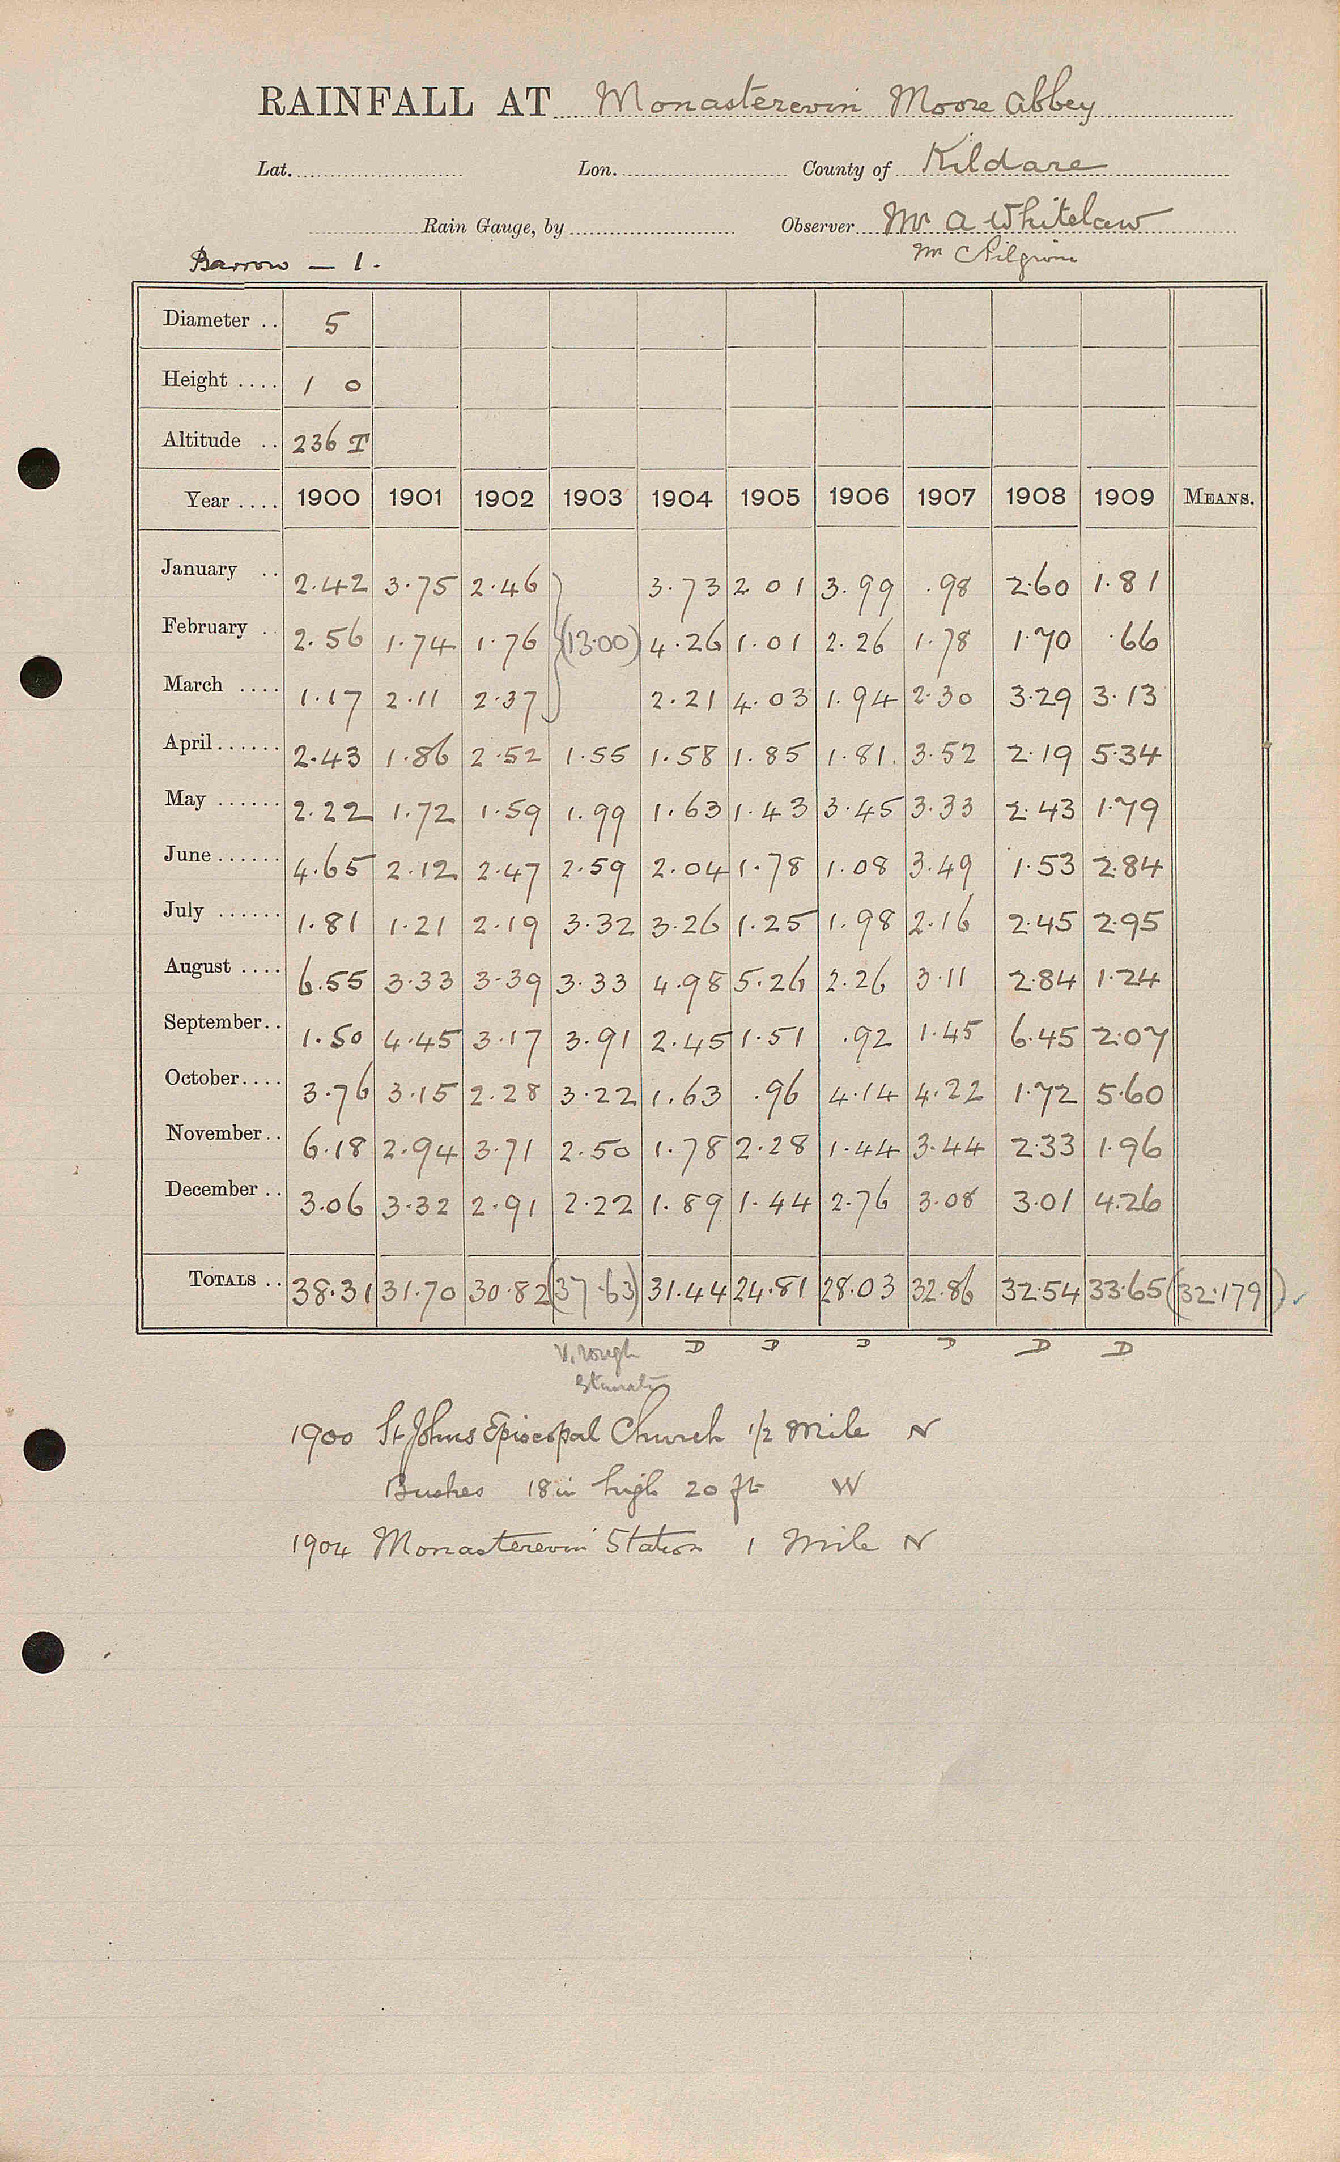 RAINFALL AT Monasterevin Moore Abbey
Lat. Lon. County of Kildare
Rain Gauge, by Observer Mr A Whitelaw
Barrow - 1. Mr C Pilgrim
Diameter .. 5
Height .... 1 0
Altitude .. 236 T
Year .... 1900 1901 1902 1903 1904 1905 1906 1907 1908 1909 MEANS.
January .. 2.42 3.75 2.46 3.73 2.01 3.99 .98 2.60 1.81
February .. 2.56 1.74 1.76 (13.00) 4.26 1.01 2.26 1.78 1.70 .66
March .... 1.17 2.11 2.37 2.21 4.03 1.94 2.30 3.29 3.13
April...... 2.43 1.86 2.52 1.55 1.58 1.85 1.81 3.52 2.19 5.34
May ...... 2.22 1.72 1.59 1.99 1.63 1.43 3.45 3.33 2.43 1.79
June...... 4.65 2.12 2.47 2.59 2.04 1.78 1.08 3.49 1.53 2.84
July ...... 1.81 1.21 2.19 3.32 3.26 1.25 1.98 2.16 2.45 2.95
August .... 6.55 3.33 3.39 3.33 4.98 5.26 2.26 3.11 2.84 1.24
September.. 1.50 4.45 3.17 3.91 2.45 1.51 .92 1.45 6.45 2.07
October.... 3.76 3.15 2.28 3.22 1.63 .96 4.14 4.22 1.72 5.60
November.. 6.18 2.94 3.71 2.50 1.78 2.28 1.44 3.44 2.33 1.96
December .. 3.06 3.32 2.91 2.22 1.89 1.44 2.76 3.08 3.01 4.26
TOTALS .. 38.31 31.70 30.82 (37.63) 31.44 24.81 28.03 32.86 32.54 33.65 (32.179)
V. rough D D D D D D
1900 St Johns Episcopal Church 1/2 Mile N
Bushes 18in high 20 ft W
1904 Monasterevin Station 1 Mile N